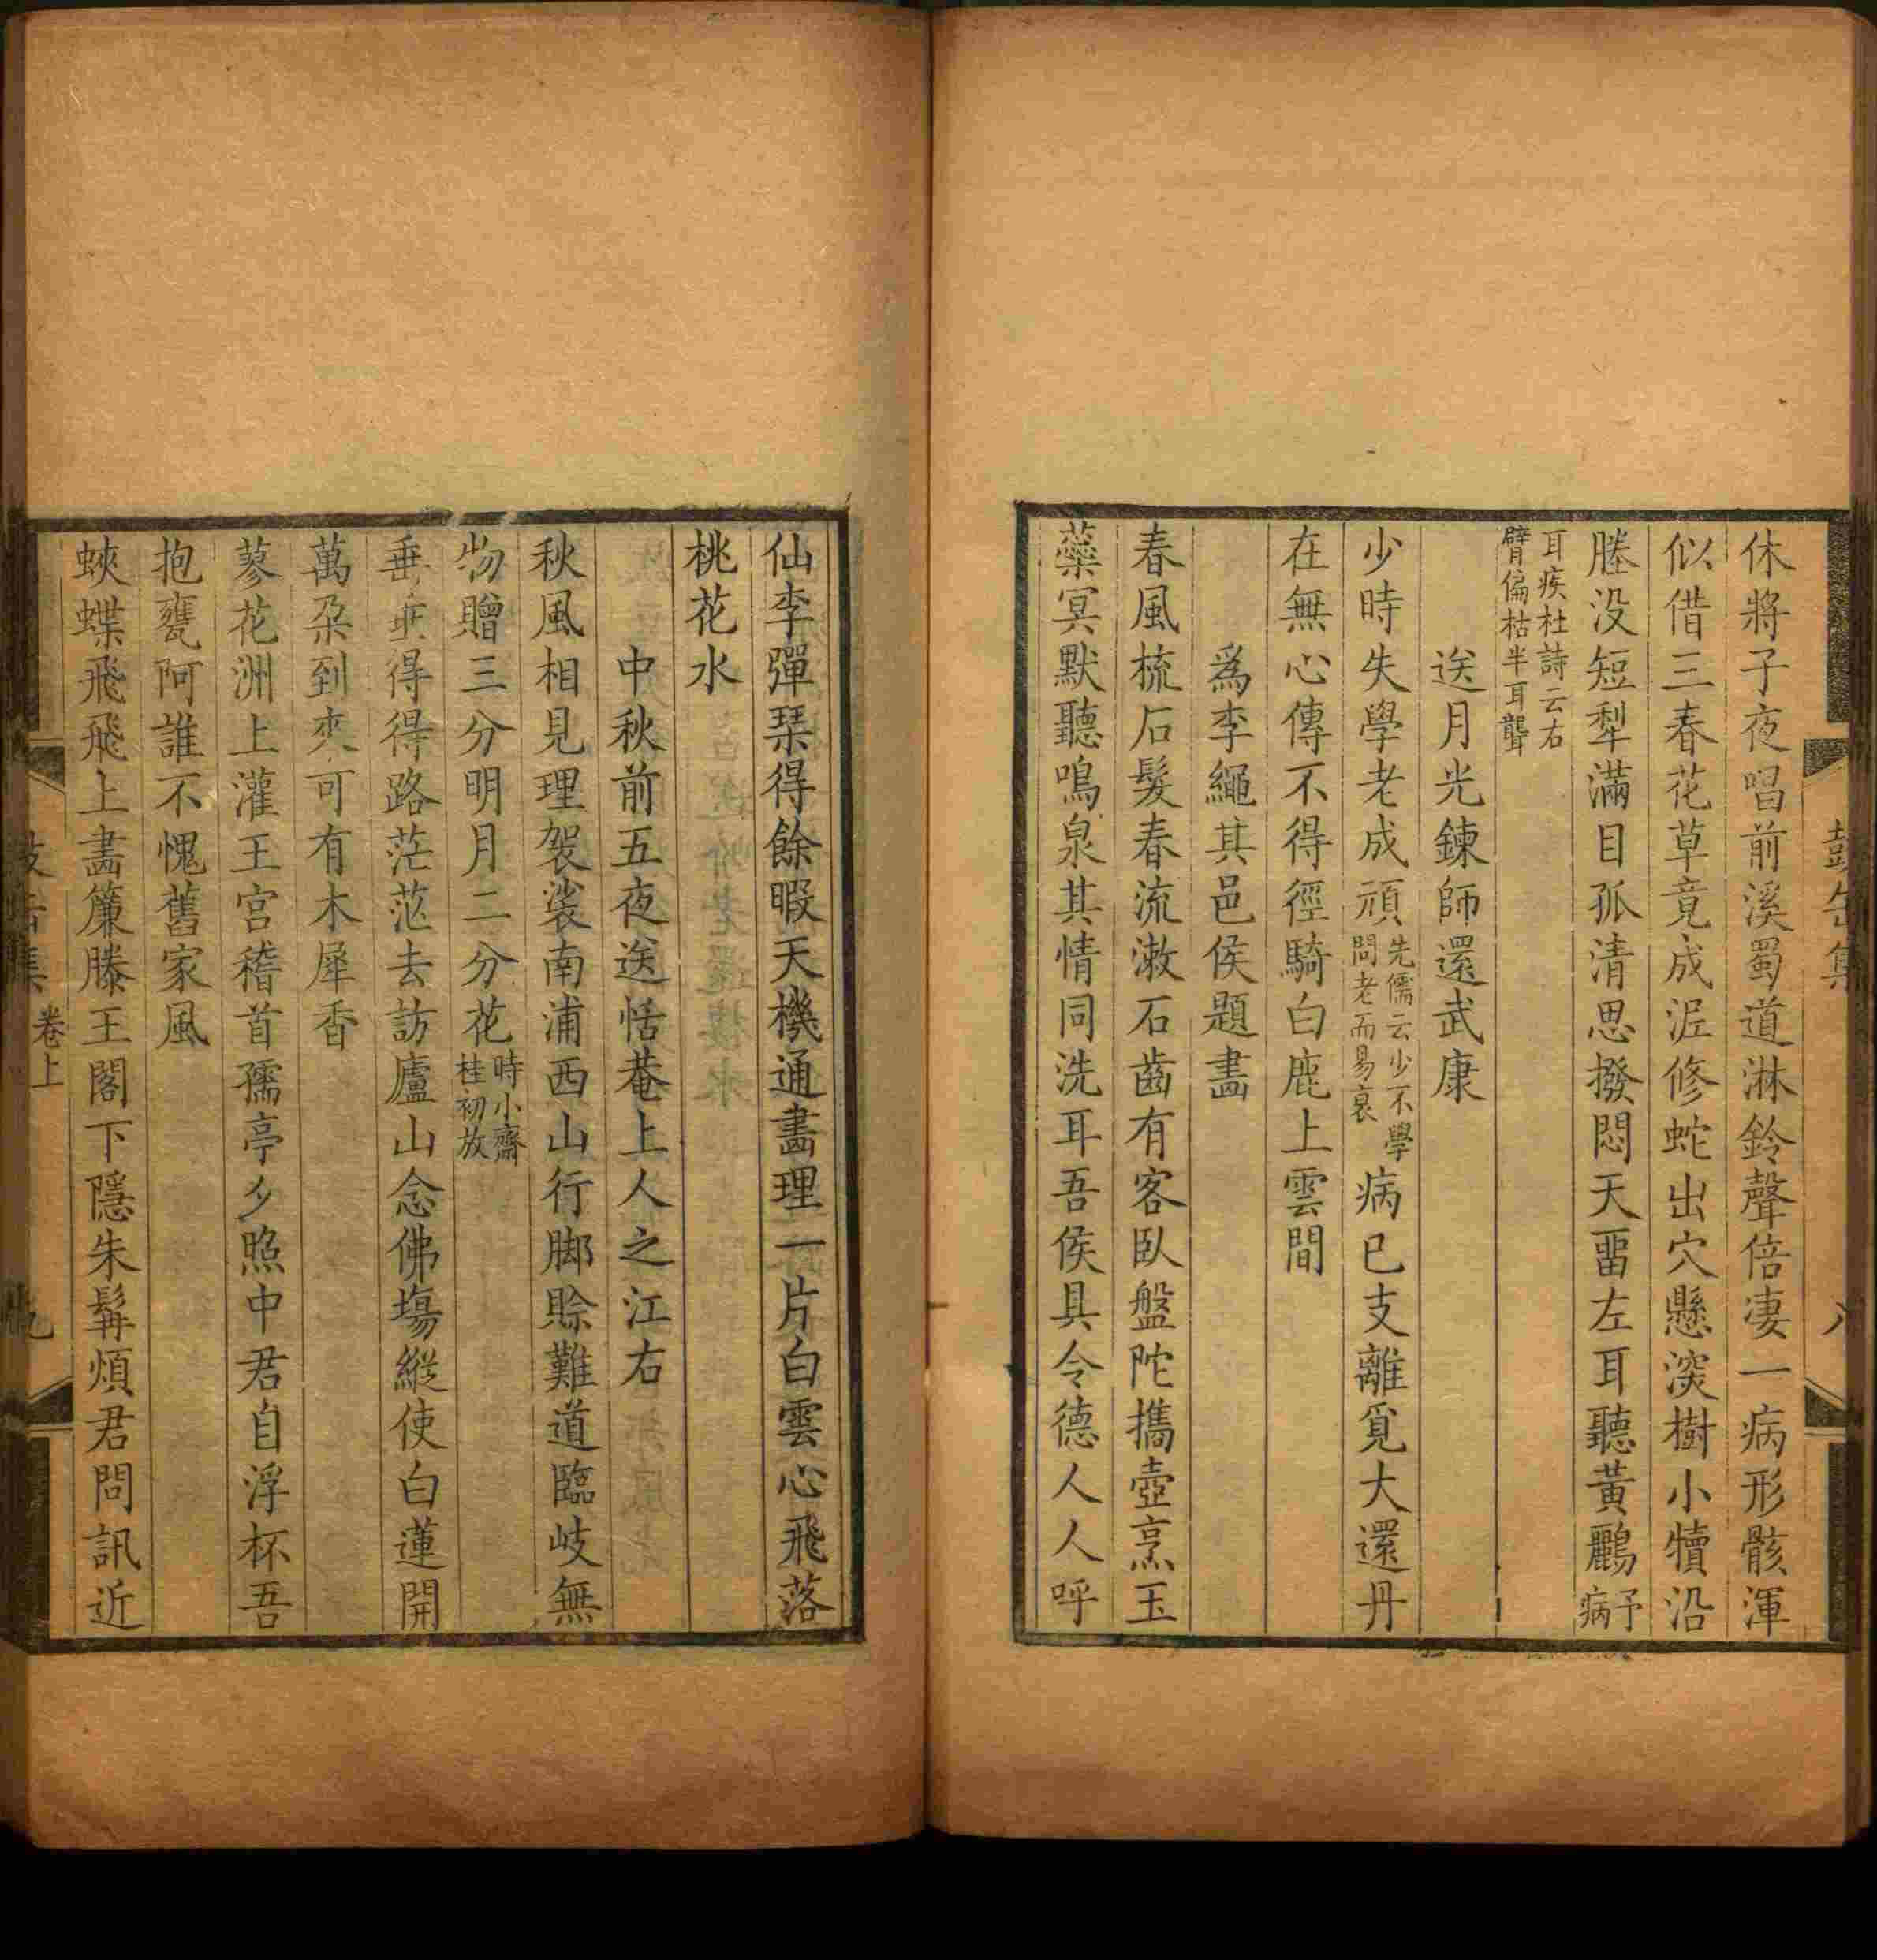 休將子夜唱前溪蜀道淋鈴聲倍凄一病形骸渾
似借三春花草竟成泥修蛇出穴懸深樹小犢沿
塍没短犁滿目孤清思撥悶天畱左耳聽黃鸝予病
耳疾杜詩云右
臂偏枯半耳聾
送月光鍊師還武康
少時失學老成頑先儒云少不學問老而易衰病已支離覓大還丹
在無心傳不得徑騎白鹿上雲間
爲李繩其邑侯題畵
春風梳石髮春流漱石齒有客臥盤陀攜壺烹玉
蘂冥默聽鳴泉其情同洗耳吾侯具令德人人呼
仙李彈琹得餘暇天機通畵理一片白雲心飛落
桃花水
中秋前五夜送恬菴上人之江右
秋風相見理袈裟南浦西山行脚賒難道臨岐無
物贈三分明月二分花時小齋桂初放
垂垂得得路茫茫去訪廬山念佛塲縱使白蓮開
萬朶到來可有木犀香
蓼花洲上灌王宫稽首孺亭夕照中君自浮杯吾
抱甕阿誰不愧舊家風
蛺蝶飛飛上畵簾滕王閣下隱朱髯煩君問訊近
卷上